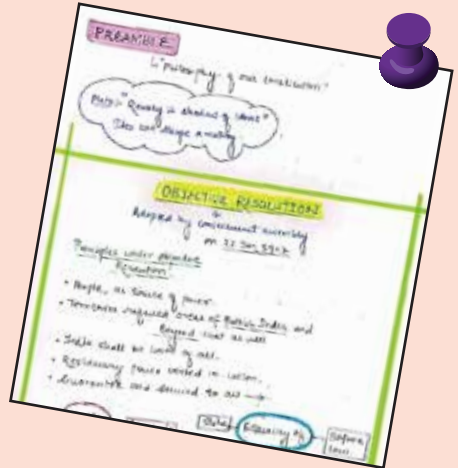 PREAMBLE
"Philosophy of our constitution"
Plato:- "Reality is shadow of ideas"
Idea can shape a reality.
OBJECTIVE RESOLUTION
Adopted by constituent assembly
on 22 Jan 1947
Principles under objective
Resolution
• People, as source of power.
• Territories areas of British India and
Beyond that as well
• India shall be of all.
• Residuary power vested in union.
• Guarantee and secured to all
Equality of
Before
law